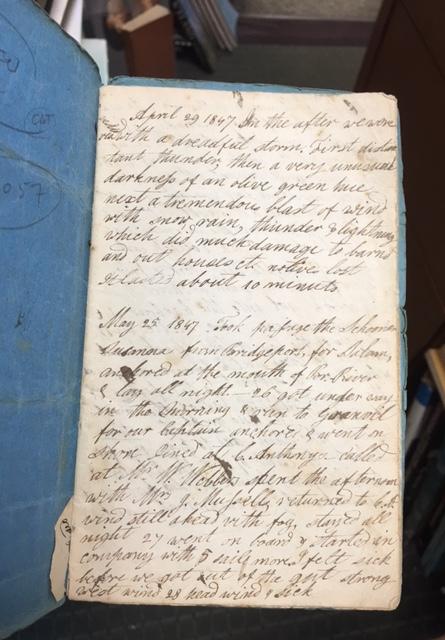 057
April 29 1847. In the after we were
with a dreadful storm. First distan
tant thunder, then a very unusual
darkness of an olive green hue
next a tremendous blast of wind
with snow, rain, thunder & lightning
which did much damage to barns
and out houses &c no live lost
It lasted about 10 minuts
May 25 1847 Took passage the Schooner
from Bridgeport, for
anchored at the mouth of River
& lay all night. — 26 got under way
in the morning & ran to
for our Captain anchored & went on
shore Dined at C. Anthonys called
at Mr W. spent the afternoon
with Mrs J. returned to
wind still ahead with fog, stayed all
night 27 went on board & started in
company with 5 sails more I felt sick
before we got out of the gut strong
west wind 28 head wind & sick